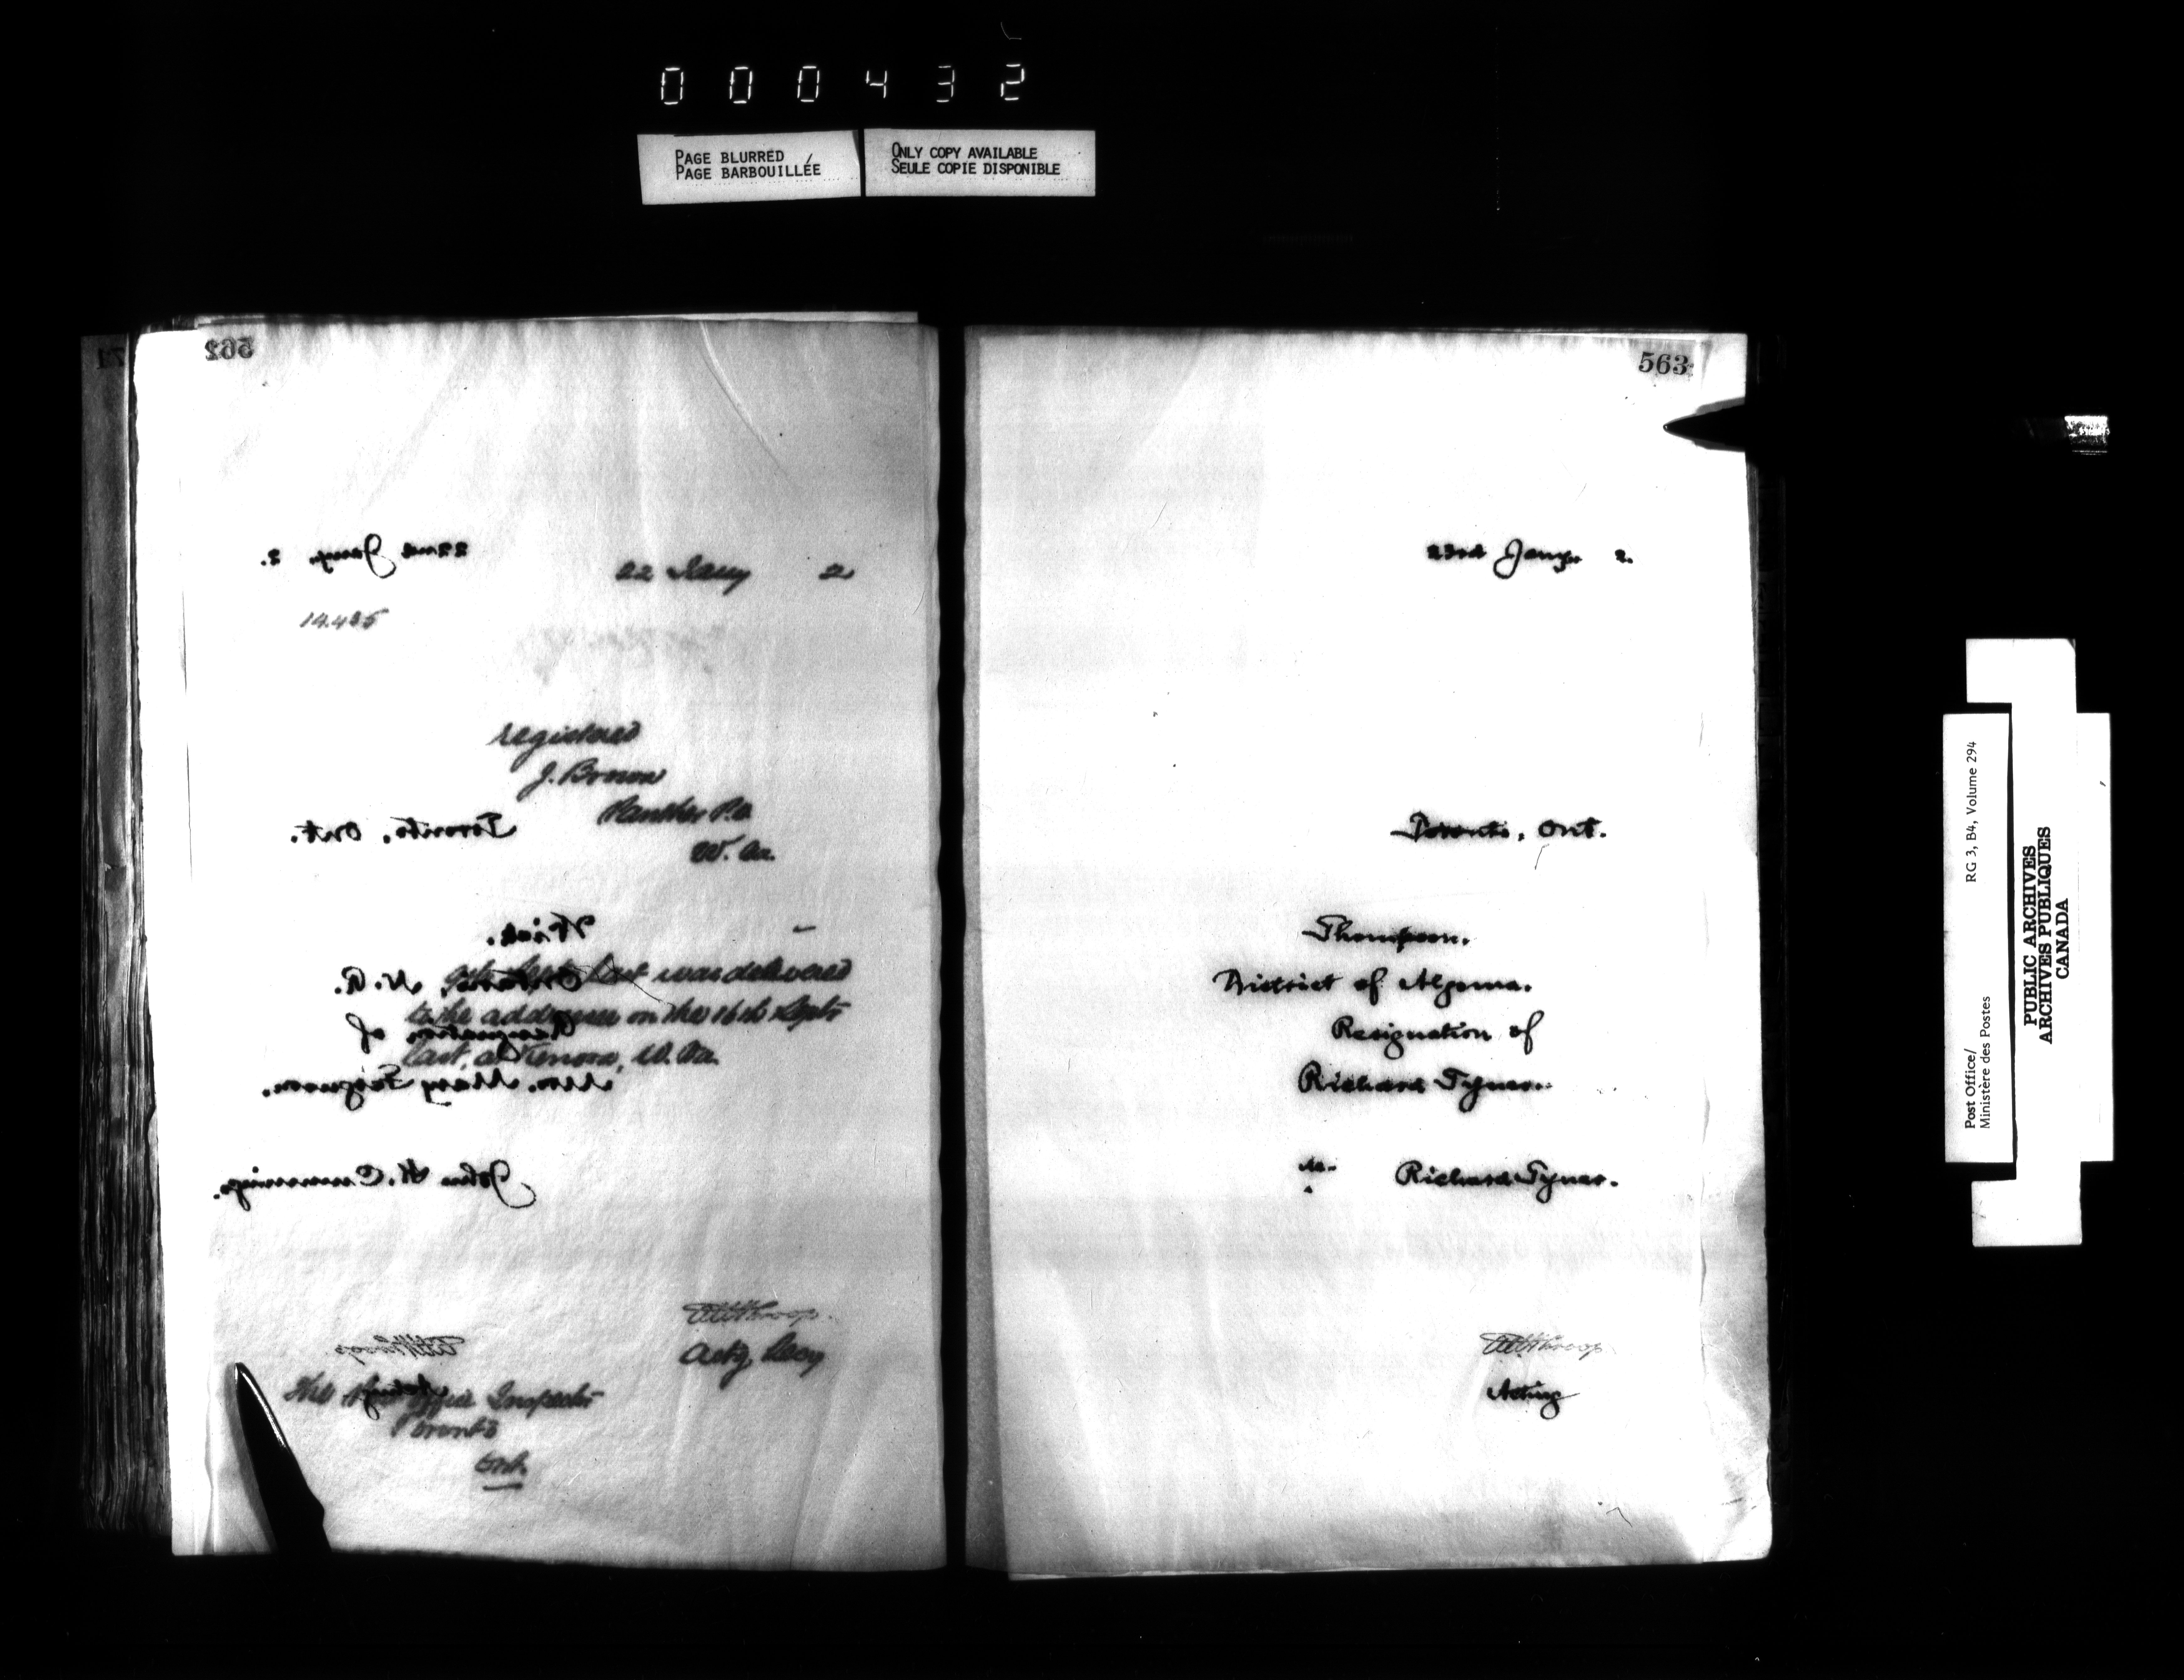 000432
PAGE BLURRED
PAGE BARBOUILLÉE
ONLY COPY AVAILABLE
SEULE COPIE DISPONIBLE
562
22nd Jany. 2.
22 Jany 2
14.435
registered
J. Brown
Panther P.O.
W. Aa.
Toronto, Ont.
Wick.
Ontario, N. R.
Resignation of
Mrs. Mary Ferguson.
John H. Cummings.
Sept last was delivered
to the addressee on the 16th Sept
last, at Kenora, W. Aa.
Actg Secy
The Post Office Inspector
Toronto
Ont.
563
23rd Jany. 2.
Toronto, Ont.
Thompson.
District of Algoma.
Resignation of
Richard Tyner.
Richard Tyner.
Acting
Post Office/
Ministère des Postes
RG 3, B4, Volume 294
PUBLIC ARCHIVES
ARCHIVES PUBLIQUES
CANADA